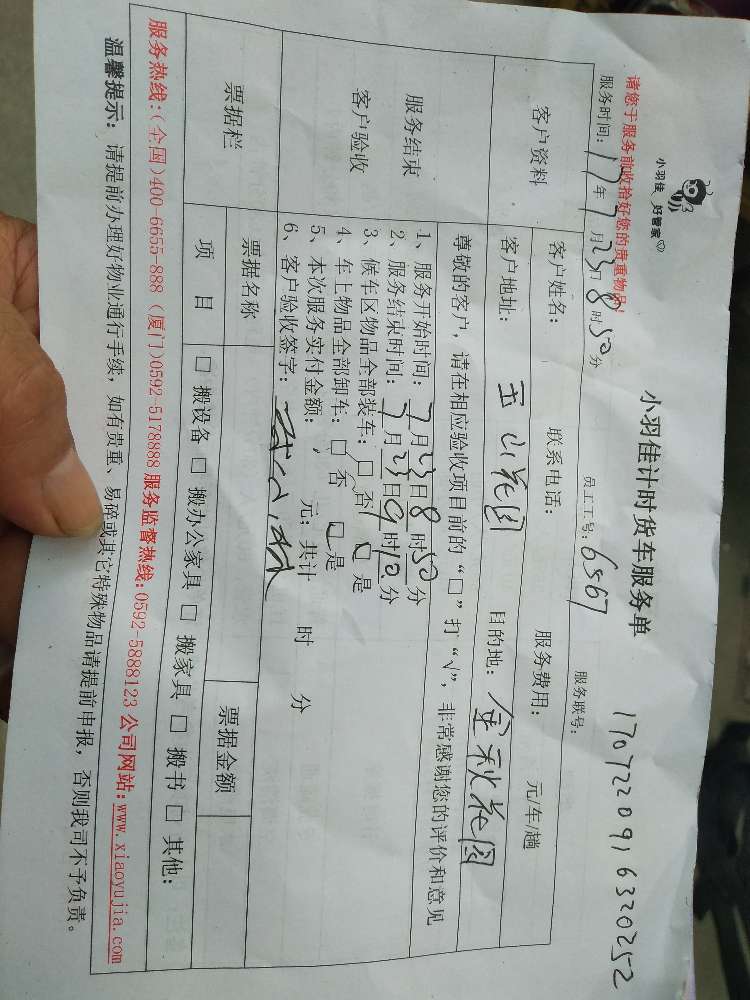 小羽佳 好管家
小羽佳计时货车服务单
1707220916320252
请您于服务前收拾好您的贵重物品!
服务时间: 17年7月23日8时50分 员工工号: 6567 服务联号:
客户资料
客户姓名: 联系电话: 服务费用: 元/车/趟
客户地址: 玉山花园 目的地: 金秋花园
服务结束
客户验收
尊敬的客户,请在相应验收项目前的“□”打“√”,非常感谢您的评价和意见
1、服务开始时间: 7月23日8时50分
2、服务结束时间: 7月23日9时10分
3、候车区物品全部装车: □否 □是
4、车上物品全部卸车: □否 □是
5、本次服务实付金额: 元; 共计 时 分
6、客户验收签字:
票据栏
票据名称 票据金额
项 目 □ 搬设备 □ 搬办公家具 □ 搬家具 □ 搬书 □ 其他:
服务热线:(全国)400-6655-888 (厦门)0592-5178888 服务监督热线:0592-5888123 公司网站:www.xiaoyujia.com
温馨提示: 请提前办理好物业通行手续,如有贵重、易碎或其它特殊物品请提前申报,否则我司不予负责。